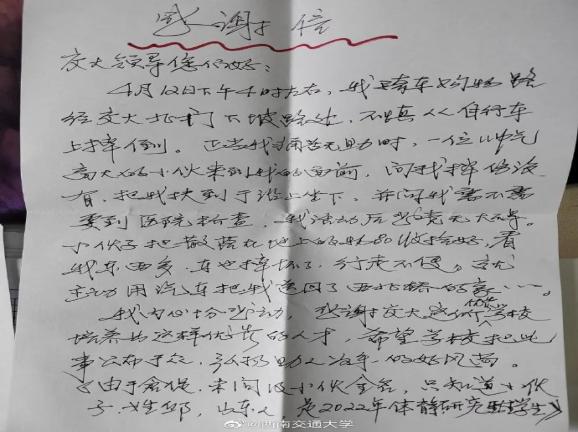 感谢信
交大领导您们好：
4月12日下午4时左右，我骑车购物路
经交大北门下坡路处，不慎从自行车
上摔倒。正当我痛苦无助时，一位帅气
高大的小伙来到我的面前，问我摔伤没
有，把我扶到于沿上坐下，并问我需不需
要到医院检查，我活动后感觉无大碍。
小伙子把散落在地上的物品收拾好，看
我东西多，车也摔坏了，行走不便，就
主动用汽车把我送回了西北桥的家……。
我内心十分感动，感谢交大这所优秀学校
培养出这样优秀的人才，希望学校把此
事公布于众，弘扬助人为乐的好风尚。
由于仓促，未问及小伙全名，只知道小伙
子姓邹，山东人，是2022年体育研究生学生
@西南交通大学